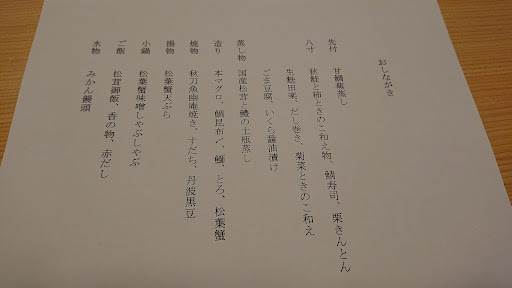 おしながき
先付 甘鯛蕪蒸し
八寸 秋鮭と柿ときのこ和え物、鯖寿司、栗きんとん
生麩田楽、だし巻き、菊菜ときのこ和え
ごま豆腐、いくら醤油漬け
蒸し物 国産松茸と鱧の土瓶蒸し
造り 本マグロ、鯛昆布〆、鰤、とろ、松葉蟹
焼物 秋刀魚幽庵焼き、すだち、丹波黒豆
揚物 松葉蟹天ぷら
小鍋 松葉蟹味噌しゃぶしゃぶ
ご飯 松茸御飯、香の物、赤だし
水物 みかん饅頭